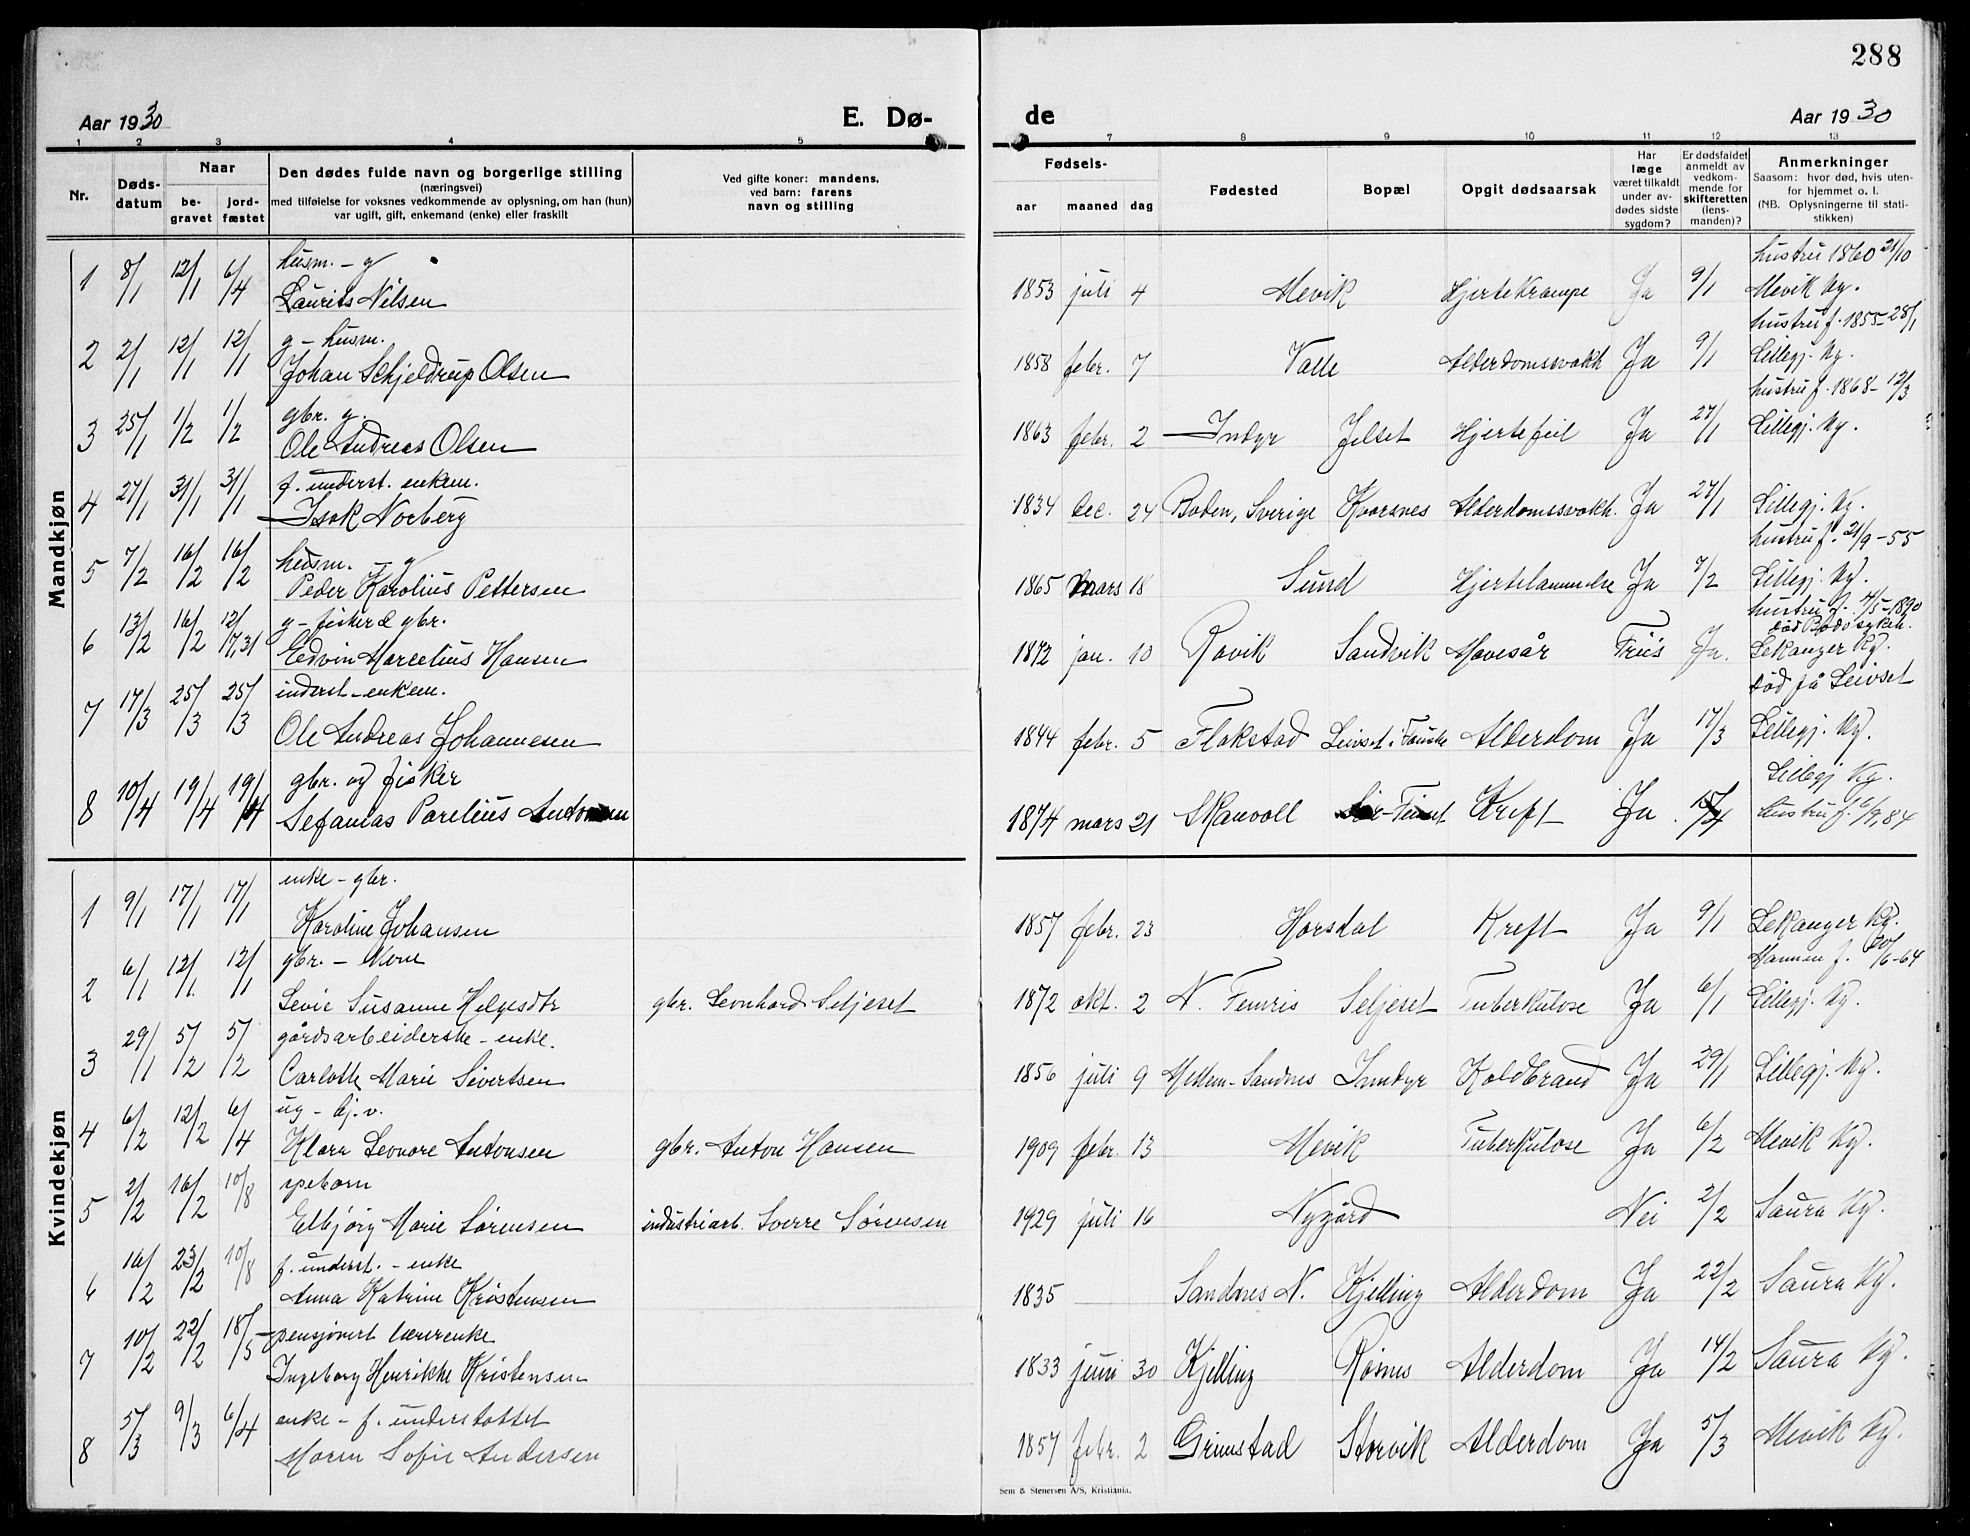 288
Aar 1930 E. Dø- de Aar 1930
1 2 3 4 5 7 8 9 10 11 12 13
Nr. Dødsdatum Naar begravet jordfæstet
Den dødes fulde navn og borgerlige stilling
(næringsvei)
med tilføielse for voksnes vedkommende av oplysning, om han (hun)
var ugift, gift, enkemand (enke) eller fraskilt
Ved gifte koner: mandens,
ved barn: farens
navn og stilling
Fødsels-
aar maaned dag
Fødested Bopæl Opgit dødsaarsak
Har læge været tilkaldt under avdødes sidste sygdom?
Er dødsfaldet anmeldt av vedkommende for skifteretten (lensmanden)?
Anmerkninger
Saasom: hvor død, hvis utenfor hjemmet o. l.
(NB. Oplysningerne til statistikken)
Mandkjøn
husm. - g hustru 1860 21/10
1 8/1 12/1 6/4 Laurits Nilsen 1853 juli 4 Mevik Hjertekrampe Ja 9/1 Mevik kg.
g - husm. hustru f. 1855 - 28/1
2 2/1 12/1 12/1 Johan Schjeldrup Olsen 1858 febr. 7 Valle Alderdomssvakh Ja 9/1 Lillegj. kg.
gbr. g. hustru f. 1868 - 12/3
3 25/1 1/2 1/2 Ole Andreas Olsen 1863 febr. 2 Indyr Jelset Hjertefeil Ja 27/1 Lillegj. kg.
f. underst. enkem.
4 27/1 31/1 31/1 Isak Norberg 1834 dec. 24 Boden, Sverige Kvarsnes Alderdomssvakh. Ja 27/1 Lillegj. kg.
husm. - g hustru f. 21/9 - 55
5 7/2 16/2 16/2 Peder Karolius Pettersen 1865 mars 18 Sund Hjertelammelse Ja 7/2 Lillegj. kg.
g - fisker & gbr. hustru f. 4/5 - 1890
død Bodø sykeh.
6 13/2 16/2 12/7, 31 Edvin Marcelius Hansen 1872 jan. 10 Ravik Sandvik Mavesår Ja. Lekanger kg.
inderst - enkem. død på Leivset
7 17/3 25/3 25/3 Ole Andreas Johannesen 1844 febr. 5 Flakstad Leivset i Fauske Alderdom Ja 17/3 Lillegj. kg.
gbr. og fisker Lillegj kg.
8 10/4 19/4 19/4 Sefanias Parelius 1874 mars 21 Skauvoll Kreft Ja 15/4 hustru f. 6/9, 84
Kvindekjøn
enke - gbr.
1 9/1 17/1 17/1 Karoline Johansen 1857 febr. 23 Horsdal Kreft Ja 9/1 Lekanger kg.
gbr. - kone Mannen f. 20/6 - 64
2 6/1 12/1 12/1 Levie Susanne Helgesdtr gbr. Leonhard Seljeset 1872 okt. 2 N. Femris Seljeset Tuberkulose Ja 6/1 Lillegj. kg.
gårdsarbeiderske - enke.
3 29/1 5/2 5/2 Carlotte Marie Sivertsen 1856 juli 9 Mellem-Sandnes Inndyr Koldbrand Ja 29/1 Lillegj. kg.
ug - hj. v.
4 6/2 12/2 6/4 Klara Leonore Antonsen gbr. Anton Hansen 1909 febr. 13 Mevik Tuberkulose Ja 6/2 Mevik kg.
speborn
5 2/2 16/2 10/8 Elbjørg Marie Sørensen industriarb. Sverre Sørensen 1929 juli 16 Nygård Nei 2/2 Saura kg.
f. underst. - enke
6 16/2 23/2 10/8 Anna Katrine Kristensen 1835 Sandnes N. Kjelling Alderdom Ja 22/2 Saura kg.
pensjonert lærerenke
7 10/2 22/2 18/5 Ingeborg Henrikke Kristensen 1833 juni 30 Kjelling Røsnes Alderdom Ja 14/2 Saura kg.
enke - f. understøttet
8 5/3 9/3 6/4 Maren Sofie Andersen 1857 febr. 2 Grimstad Storvik Alderdom Ja 5/3 Mevik kg.
Sem & Stenersen A/S, Kristiania.